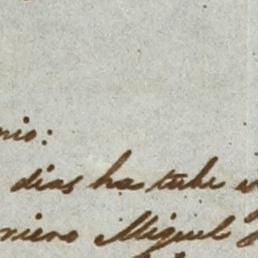 nio:
dias ha tube
niero Miguel